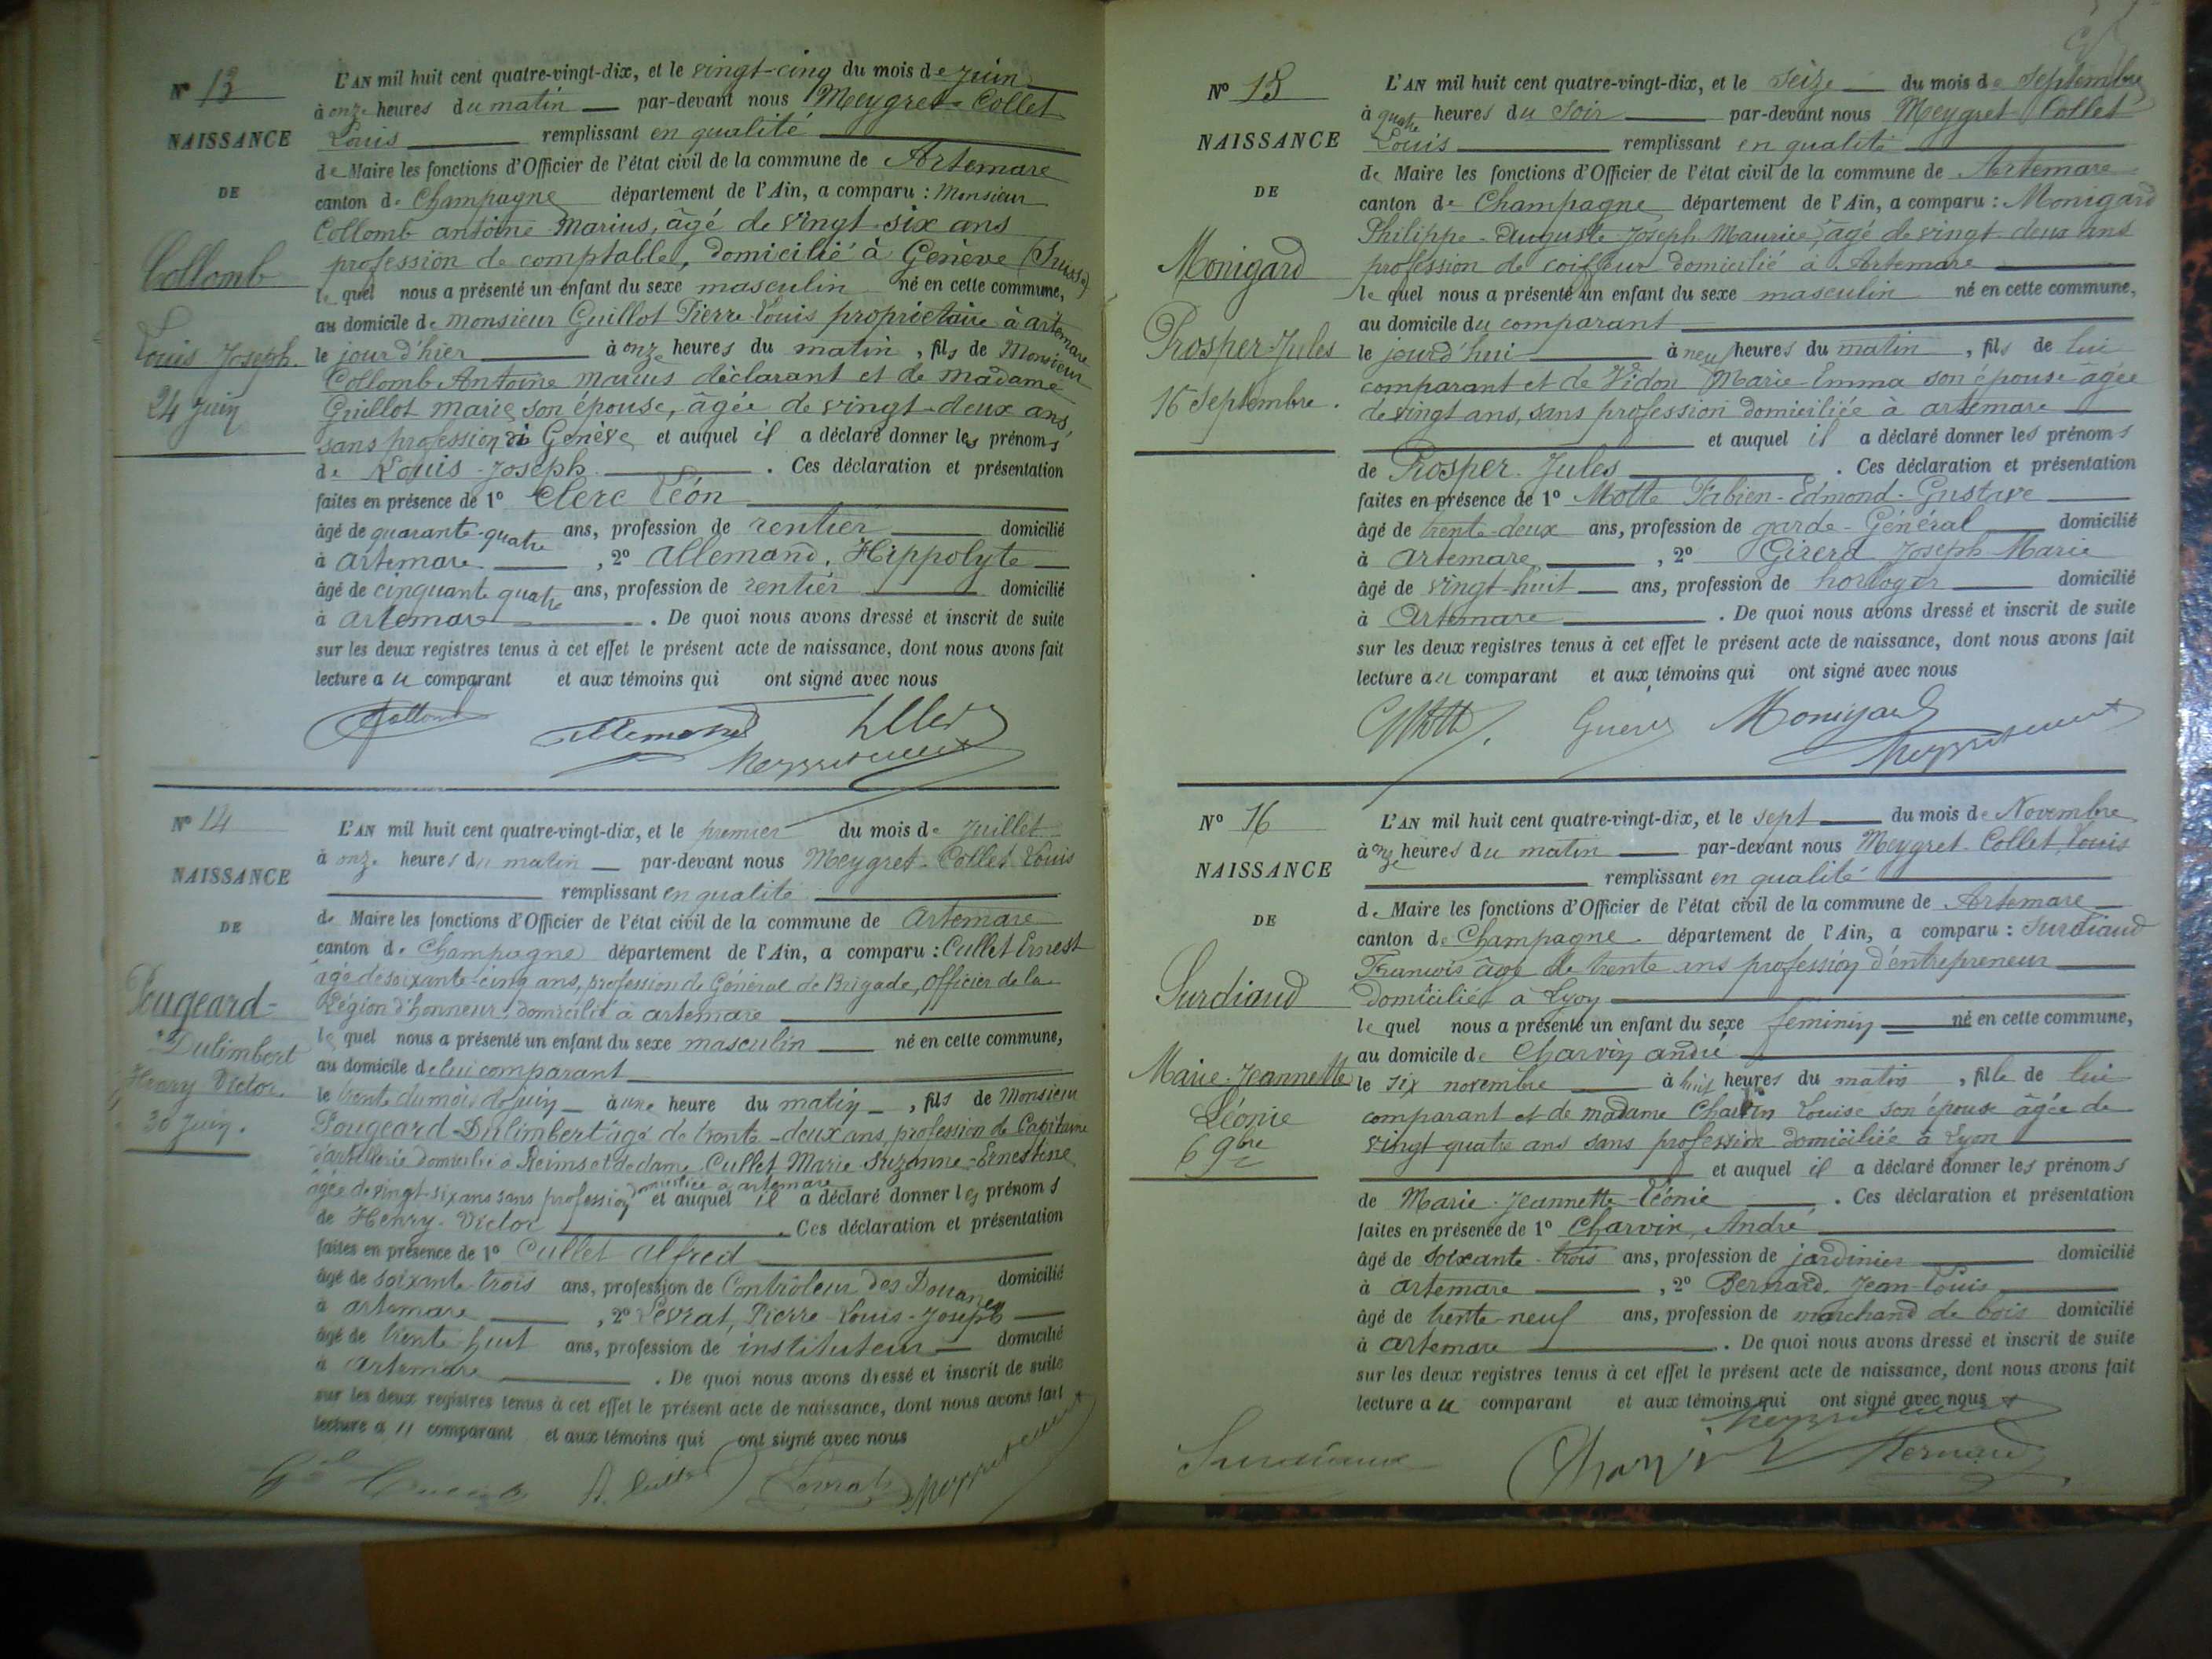 Nº 13
NAISSANCE
DE
Collomb
Louis Joseph.
24 Juin
L'AN mil huit cent quatre-vingt-dix, et le vingt-cinq du mois de Juin
à onze heures du matin par-devant nous Meygret-Collet
Louis remplissant en qualité
de Maire les fonctions d'Officier de l'état civil de la commune de Artemare
canton de Champagne département de l'Ain, a comparu : Monsieur
Collomb antoine Marius, âgé de vingt-six ans
profession de comptable, domicilié à Genève (Suisse)
le quel nous a présenté un enfant du sexe masculin né en cette commune,
au domicile de monsieur Guillot Pierre Louis propriétaire à artemare
le jour d'hier à onze heures du matin, fils de Monsieur
Collomb Antoine Marius déclarant et de madame
Guillot Marie son épouse, âgée de vingt-deux ans,
sans profession à Genève et auquel il a déclaré donner les prénoms
de Louis-Joseph. Ces déclaration et présentation
faites en présence de 1º Clerc Léon
âgé de quarante-quatre ans, profession de rentier domicilié
à artemare, 2º allemand, Hippolyte
âgé de cinquante quatre ans, profession de rentier domicilié
à artemare. De quoi nous avons dressé et inscrit de suite
sur les deux registres tenus à cet effet le présent acte de naissance, dont nous avons fait
lecture au comparant et aux témoins qui ont signé avec nous
Nº 14
NAISSANCE
DE
Pougeard-
Dulimbert
Henry Victor
30 Juin.
L'AN mil huit cent quatre-vingt-dix, et le premier du mois de Juillet
à onze heures du matin par-devant nous Meygret-Collet Louis
remplissant en qualité
de Maire les fonctions d'Officier de l'état civil de la commune de artemare
canton de Champagne département de l'Ain, a comparu : Cullet Ernest
âgé de soixante-cinq ans, profession de Général de Brigade, officier de la
Légion d'honneur, domicilié à artemare
le quel nous a présenté un enfant du sexe masculin né en cette commune,
au domicile de lui comparant
le trente du mois de Juin à une heure du matin, fils de Monsieur
Pougeard-Dulimbert âgé de trente-deux ans, profession de Capitaine
d'artillerie domicilié à Reims et de dame Cullet Marie Suzanne-Ernestine
âgée de vingt-six ans sans profession domiciliée à artemare et auquel il a déclaré donner les prénoms
de Henry-Victor. Ces déclaration et présentation
faites en présence de 1º Cullet alfred
âgé de soixante trois ans, profession de Contrôleur des Douanes domicilié
à artemare, 2º Levrat, Pierre-Louis-Joseph
âgé de trente huit ans, profession de instituteur domicilié
à artemare. De quoi nous avons dressé et inscrit de suite
sur les deux registres tenus à cet effet le présent acte de naissance, dont nous avons fait
lecture au comparant et aux témoins qui ont signé avec nous
A. Cullet Levrat
Nº 15
NAISSANCE
DE
Monigard
Prosper-Jules
16 Septembre.
L'AN mil huit cent quatre-vingt-dix, et le seize du mois de Septembre
à quatre heures du soir par-devant nous Meygret Collet
Louis remplissant en qualité
de Maire les fonctions d'Officier de l'état civil de la commune de Artemare
canton de Champagne département de l'Ain, a comparu : Monigard
Philippe-Auguste Joseph Maurice, âgé de vingt-deux ans
profession de coiffeur domicilié à Artemare
le quel nous a présenté un enfant du sexe masculin né en cette commune,
au domicile du comparant
le jourd'hui à neuf heures du matin, fils de lui
comparant et de Vidon Marie-Emma son épouse âgée
de vingt ans, sans profession domiciliée à artemare
et auquel il a déclaré donner les prénoms
de Prosper-Jules. Ces déclaration et présentation
faites en présence de 1º Motte Fabien-Edmond-Gustave
âgé de trente-deux ans, profession de garde-Général domicilié
à artemare, 2º Girerd Joseph Marie
âgé de vingt-huit ans, profession de horloger domicilié
à Artemare. De quoi nous avons dressé et inscrit de suite
sur les deux registres tenus à cet effet le présent acte de naissance, dont nous avons fait
lecture au comparant et aux témoins qui ont signé avec nous
Monigard
Nº 16
NAISSANCE
DE
Surdiaud
Marie-Jeannette
Léonie
6 9bre
L'AN mil huit cent quatre-vingt-dix, et le sept du mois de Novembre
à onze heures du matin par-devant nous Meygret-Collet, Louis
remplissant en qualité
de Maire les fonctions d'Officier de l'état civil de la commune de Artemare
canton de Champagne département de l'Ain, a comparu : Surdiaud
François âgé de trente ans profession d'entrepreneur
domicilié à Lyon
le quel nous a présenté un enfant du sexe feminin né en cette commune,
au domicile de Charvin andré
le six novembre à huit heures du matin, fille de lui
comparant et de madame Charvin Louise son épouse âgée de
vingt-quatre ans sans profession domiciliée à Lyon
et auquel il a déclaré donner les prénoms
de Marie-Jeannette-Léonie. Ces déclaration et présentation
faites en présence de 1º Charvin, André
âgé de soixante-trois ans, profession de jardinier domicilié
à artemare, 2º Bernard, Jean-Louis
âgé de trente-neuf ans, profession de marchand de bois domicilié
à artemare. De quoi nous avons dressé et inscrit de suite
sur les deux registres tenus à cet effet le présent acte de naissance, dont nous avons fait
lecture au comparant et aux témoins qui ont signé avec nous
Surdiaud Charvin Bernard